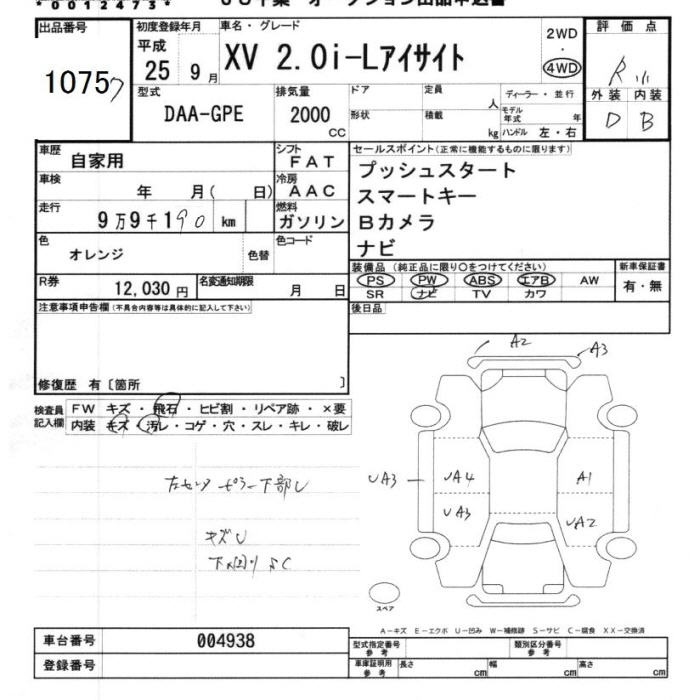 *00124473*
出品番号
10757
初度登録年月
平成
25 9月
車名・グレード
XV 2.0i-Lアイサイト
2WD
・
4WD
評価点
R
外装 内装
D B
型式
DAA-GPE
排気量
2000
CC
ドア
定員
人
形状
積載
kg
ディーラー・並行
モデル年式 年
ハンドル 左・右
車歴
自家用
シフト
FAT
車検
年 月( 日)
冷房
AAC
走行
9万9千190 km
燃料
ガソリン
色
オレンジ
色替
色コード
R券
12,030円
名変通知期限
月 日
セールスポイント(正常に機能するものに限ります)
プッシュスタート
スマートキー
Bカメラ
ナビ
装備品(純正品に限り○をつけてください)
PS PW ABS エアB AW
SR ナビ TV カワ
新車保証書
有・無
後日品
注意事項申告欄(不具合内容等は具体的に記入して下さい)
修復歴 有〔箇所 〕
検査員
記入欄
FW キズ・飛石・ヒビ割・リペア跡・×要
内装 キズ・汚レ・コゲ・穴・スレ・キレ・破レ
左センターピラー下部U
キズU
下廻りSC
A2
A3
UA3
UA4
A1
UA3
UA2
スペア
A−キズ E−エクボ U−凹み W−補修跡 S−サビ C−腐食 XX−交換済
車台番号
004938
登録番号
型式指定番号
参考
類別区分番号
参考
車庫証明用
参考
長さ cm
幅 cm
高さ cm